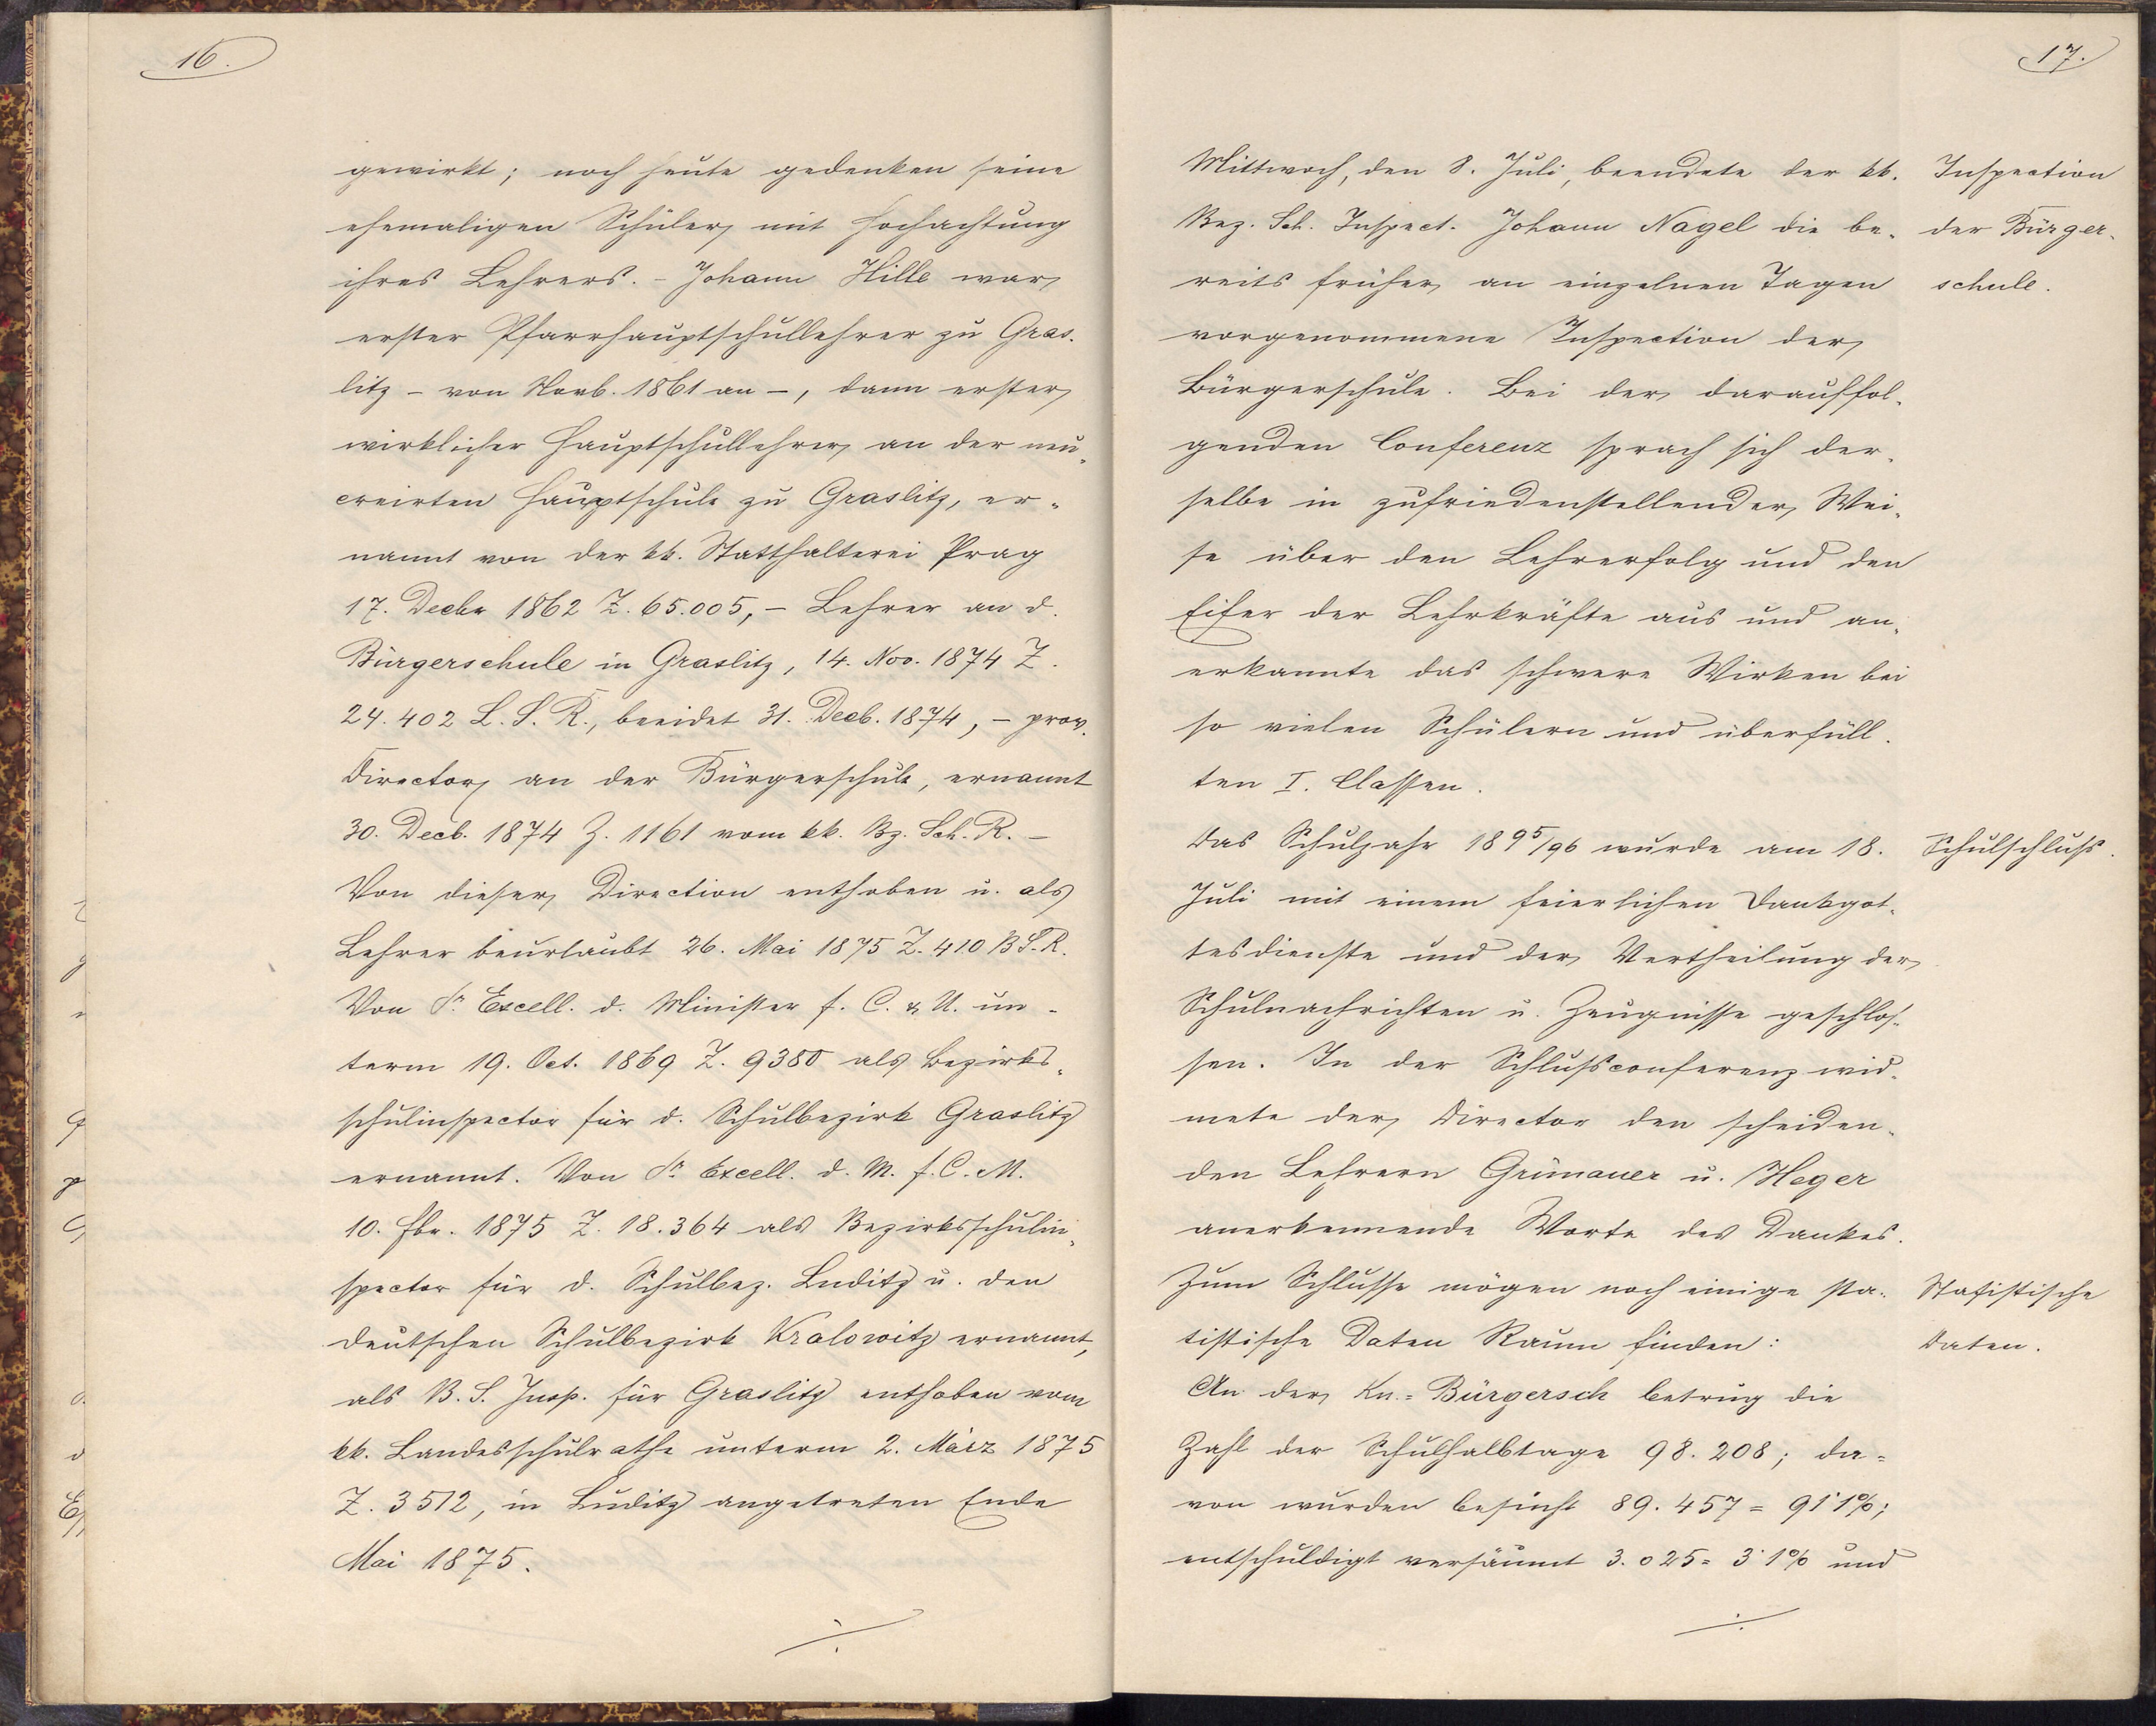 16.
gewirkt; noch heute gedenken seine
ehemaligen Schüler mit Hochachtung
ihres Lehrers. – Johann Hille war
erster Pfarrhauptschullehrer zu Gras-
litz – von Novb. 1861 an –, dann erster
wirklicher Hauptschullehrer an der neu-
creirten Hauptschule zu Graslitz, er-
nannt von der kk. Statthalterei Prag
17. Decbr 1862 Z. 65.005, – Lehrer an d.
Bürgerschule in Graslitz, 14. Nov. 1874 Z.
24.402 L. S. R., beeidet 31. Decb. 1874, – prov.
Director an der Bürgerschule, ernannt
30. Decb. 1874 Z. 1161 vom kk. Bz. Sch. R. –
Von dieser Direction enthoben u. als
Lehrer beurlaubt 26. Mai 1875 Z. 410 B.S.R.
Von Sr. Excell. d. Minister f. C. & U. un-
term 19. Oct. 1869 Z. 9380 als Bezirks-
schulinspector für d. Schulbezirk Graslitz
ernannt. Von Sr. Excell. d. M. f. C. M.
10. Fbr. 1875 Z. 18.364 als Bezirksschulin-
spector für d. Schulbez. Luditz u. den
deutschen Schulbezirk Kralowitz ernannt,
als B. S. Insp. für Graslitz enthoben vom
kk. Landesschulrathe unterm 2. März 1875
Z. 3512, in Luditz angetreten Ende
Mai 1875.
./.
17.
Mittwoch, den 8. Juli, beendete der kk.
Bez. Sch. Inspect. Johann Nagel die be-
reits früher an einzelnen Tagen
vorgenommene Inspection der
Bürgerschule. Bei der darauffol-
genden Conferenz sprach sich der-
selbe in zufriedenstellender Wei-
se über den Lehrerfolg und den
Eifer der Lehrkräfte aus und an-
erkannte das schwere Wirken bei
so vielen Schülern und überfüll-
ten I. Classen.
Das Schuljahr 1895/96 wurde am 18.
Juli mit einem feierlichen Dankgot-
tesdienste und der Vertheilung der
Schulnachrichten u. Zeugnisse geschlos-
sen. In der Schlußconferenz wid-
mete der Director den scheiden-
den Lehrern Grünauer u. Heger
anerkennende Worte des Dankes.
Zum Schlusse mögen noch einige sta-
tistische Daten Raum finden:
An der Kn.=Bürgersch betrug die
Zahl der Schulhalbtage 98.208; da=
von wurden besucht 89.457 = 91˙1%;
entschuldigt versäumt 3.025 = 3˙1% und
./.
Inspection
der Bürger-
schule.
Schulschluß.
Statistische
Daten.